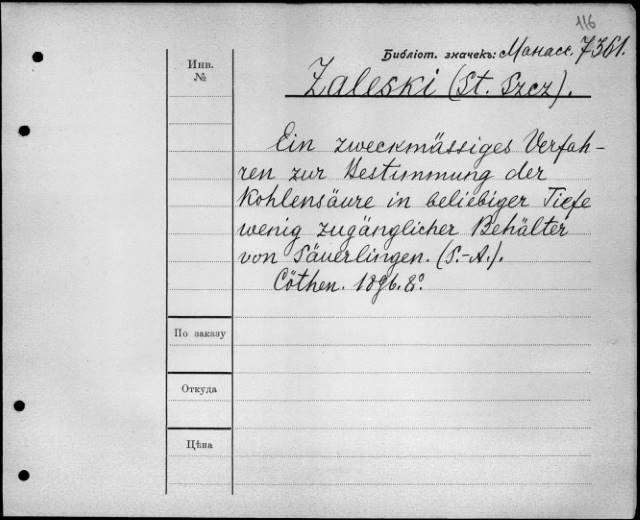 116
Библіот. значекъ: Манасс. 7361.
Инв.
№
Zaleski (St. Szcz).
Ein zweckmässiges Verfah-
ren zur Bestimmung der
Kohlensäure in beliebiger Tiefe
wenig zugänglicher Behälter
von Säuerlingen. (S.-A.).
Cöthen. 1896. 8º.
По заказу
Откуда
Цѣна